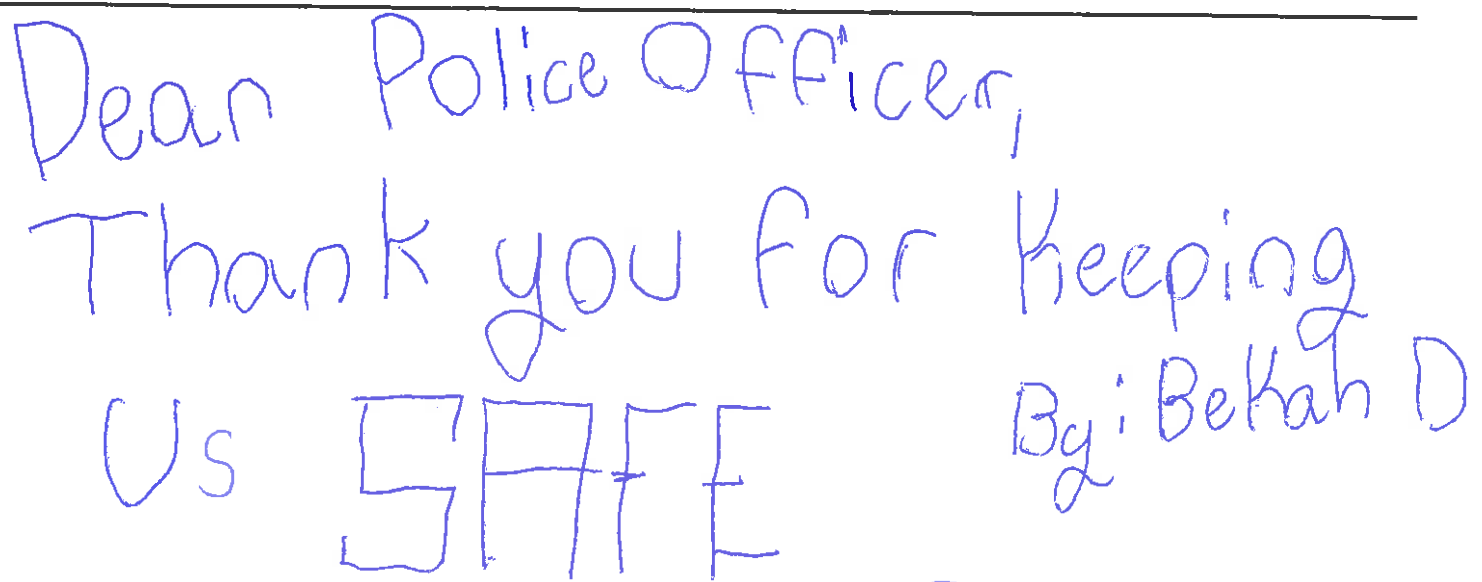 Dear Police Officer,
Thank you for Keeping
Us SAFE
By: Bekah D